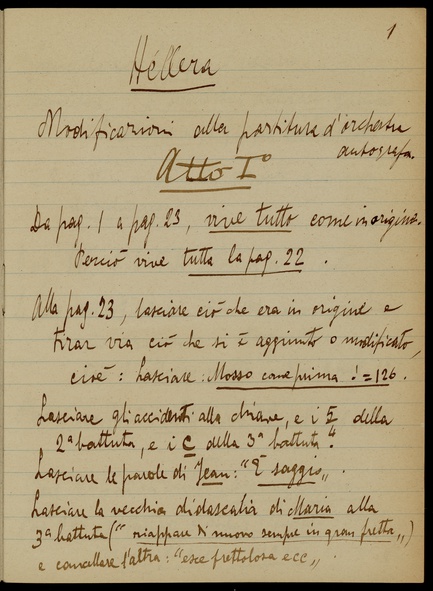 1
Héllera
Modificazioni alla partitura d'orchestra
autografa.
Atto I°
Da pag. 1 a pag. 23, vive tutto come in origine.
Perciò vive tutta la pag. 22.
Alla pag. 23, lasciare ciò che era in origine e
tirar via ciò che si è aggiunto o modificato,
cioè: Lasciare: Mosso come prima ♩=126.
Lasciare gli accidenti alla chiave, e i della
2ª battuta, e i C della 3ª battuta.
Lasciare le parole di Jean: "È saggio„.
Lasciare la vecchia didascalia di Maria alla
3ª battuta ("riappare di nuovo sempre in gran fretta„)
e cancellare l'altra: "esce frettolosa ecc„.